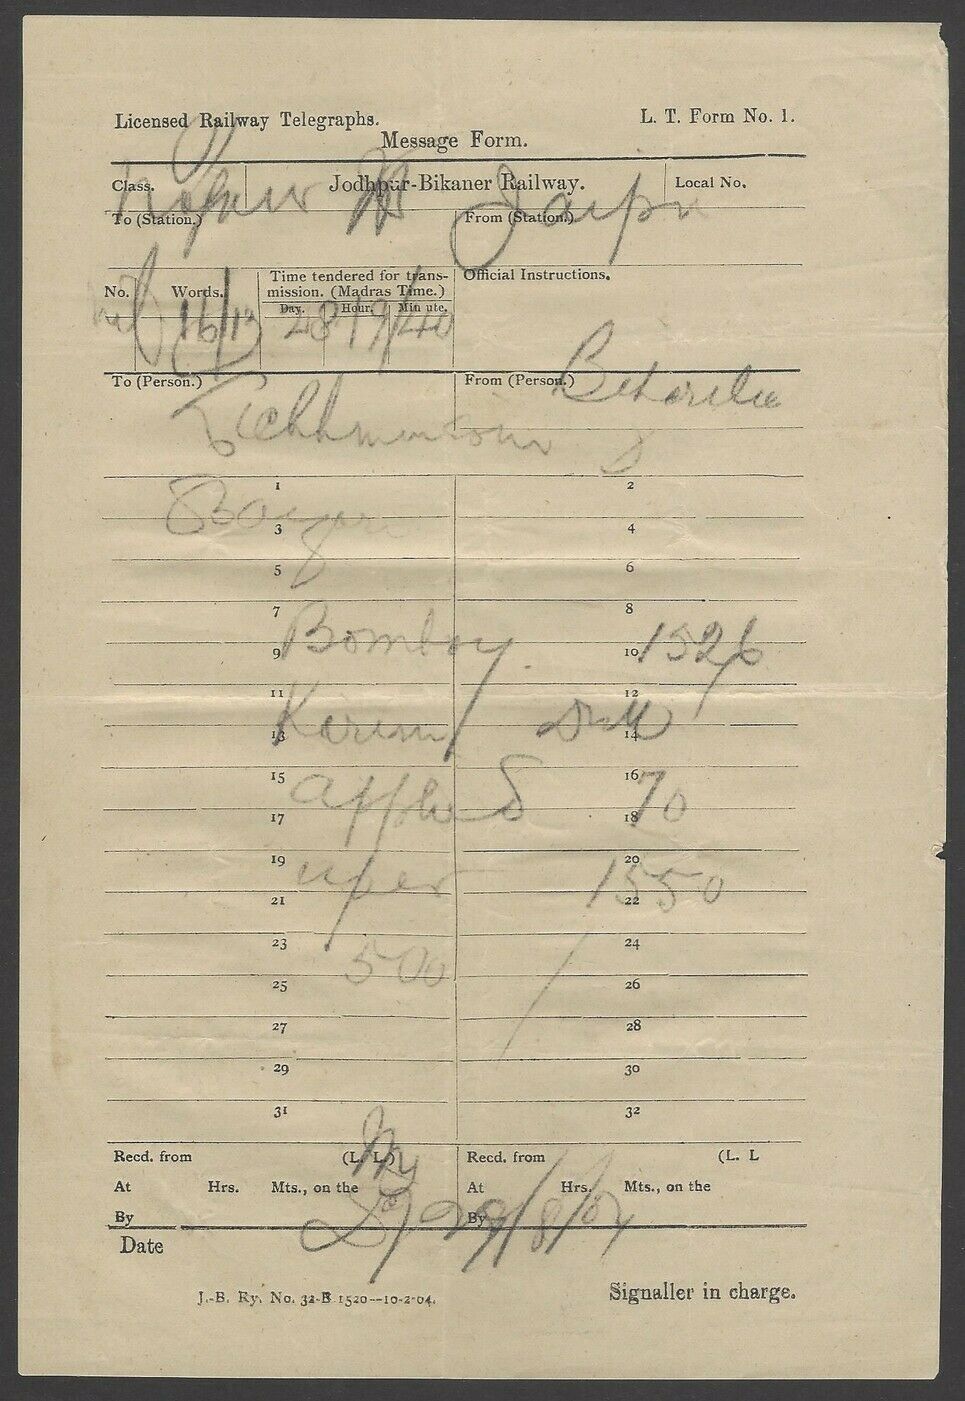 Licensed Railway Telegraphs.
L. T. Form No. 1.
Message Form.
Class.
Jodhpur-Bikaner Railway.
Local No.
To (Station.)
From (Station.)
No.
Words.
Time tendered for trans-
mission. (Madras Time.)
Official Instructions.
Day.
Hour.
Minute.
16/13
28
19/40
To (Person.)
From (Person.)
1
2
3
4
5
6
7
8
Bombay
1526
9
10
11
12
13
14
15
16
70
17
18
19
20
1550
21
22
23
24
500
25
26
27
28
29
30
31
32
Recd. from (L. L.)
Recd. from (L. L
At Hrs. Mts., on the
At Hrs. Mts., on the
By
By
29/8/07
Date
J.-B. Ry. No. 32-B 1520--10-2-04.
Signaller in charge.